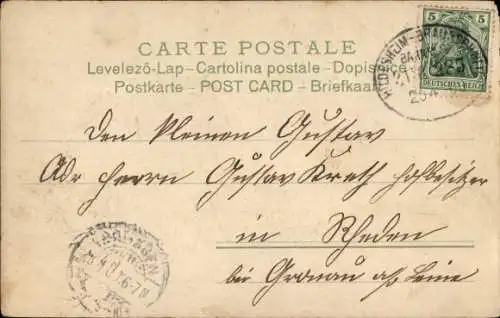 CARTE POSTALE
Levelező-Lap – Cartolina postale – Dopisnice
Postkarte – POST CARD – Briefkaart
5 5
DEUTSCHES REICH
HILDESHEIM-BRAUNSCHWEIG
BAHNPOST
Den kleinen Gustav
Adr Herrn Gustav Kreth Hofbesitzer
in Rheden
bei Gronau a/d Leine